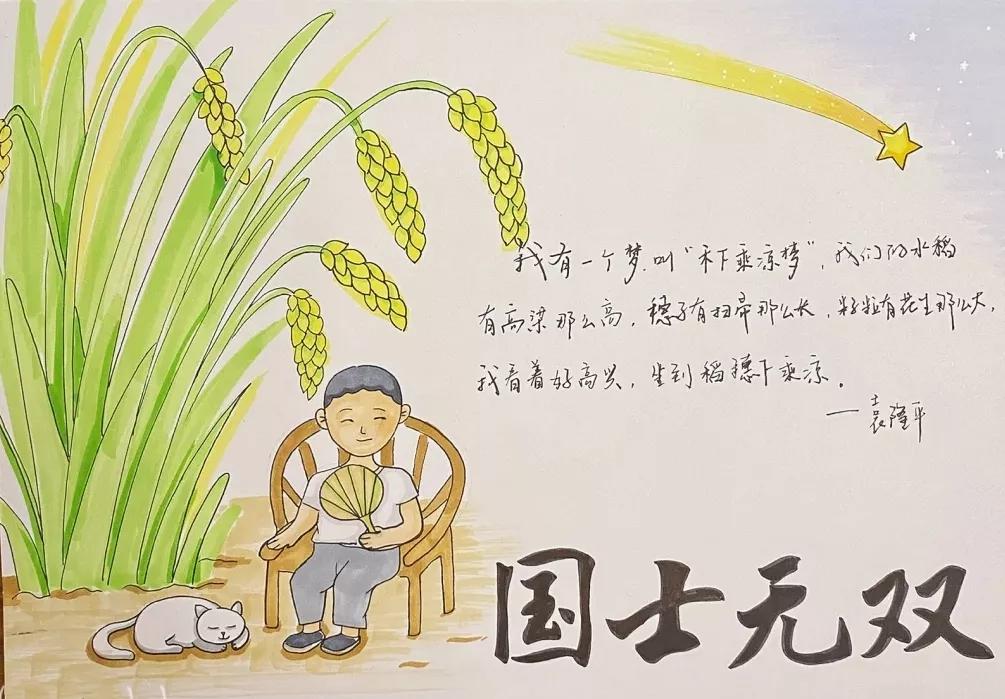 我有一个梦,叫"禾下乘凉梦",我们的水稻
有高粱那么高,穗子有扫帚那么长,籽粒有花生那么大,
我看着好高兴,坐到稻穗下乘凉。
——袁隆平
国士无双